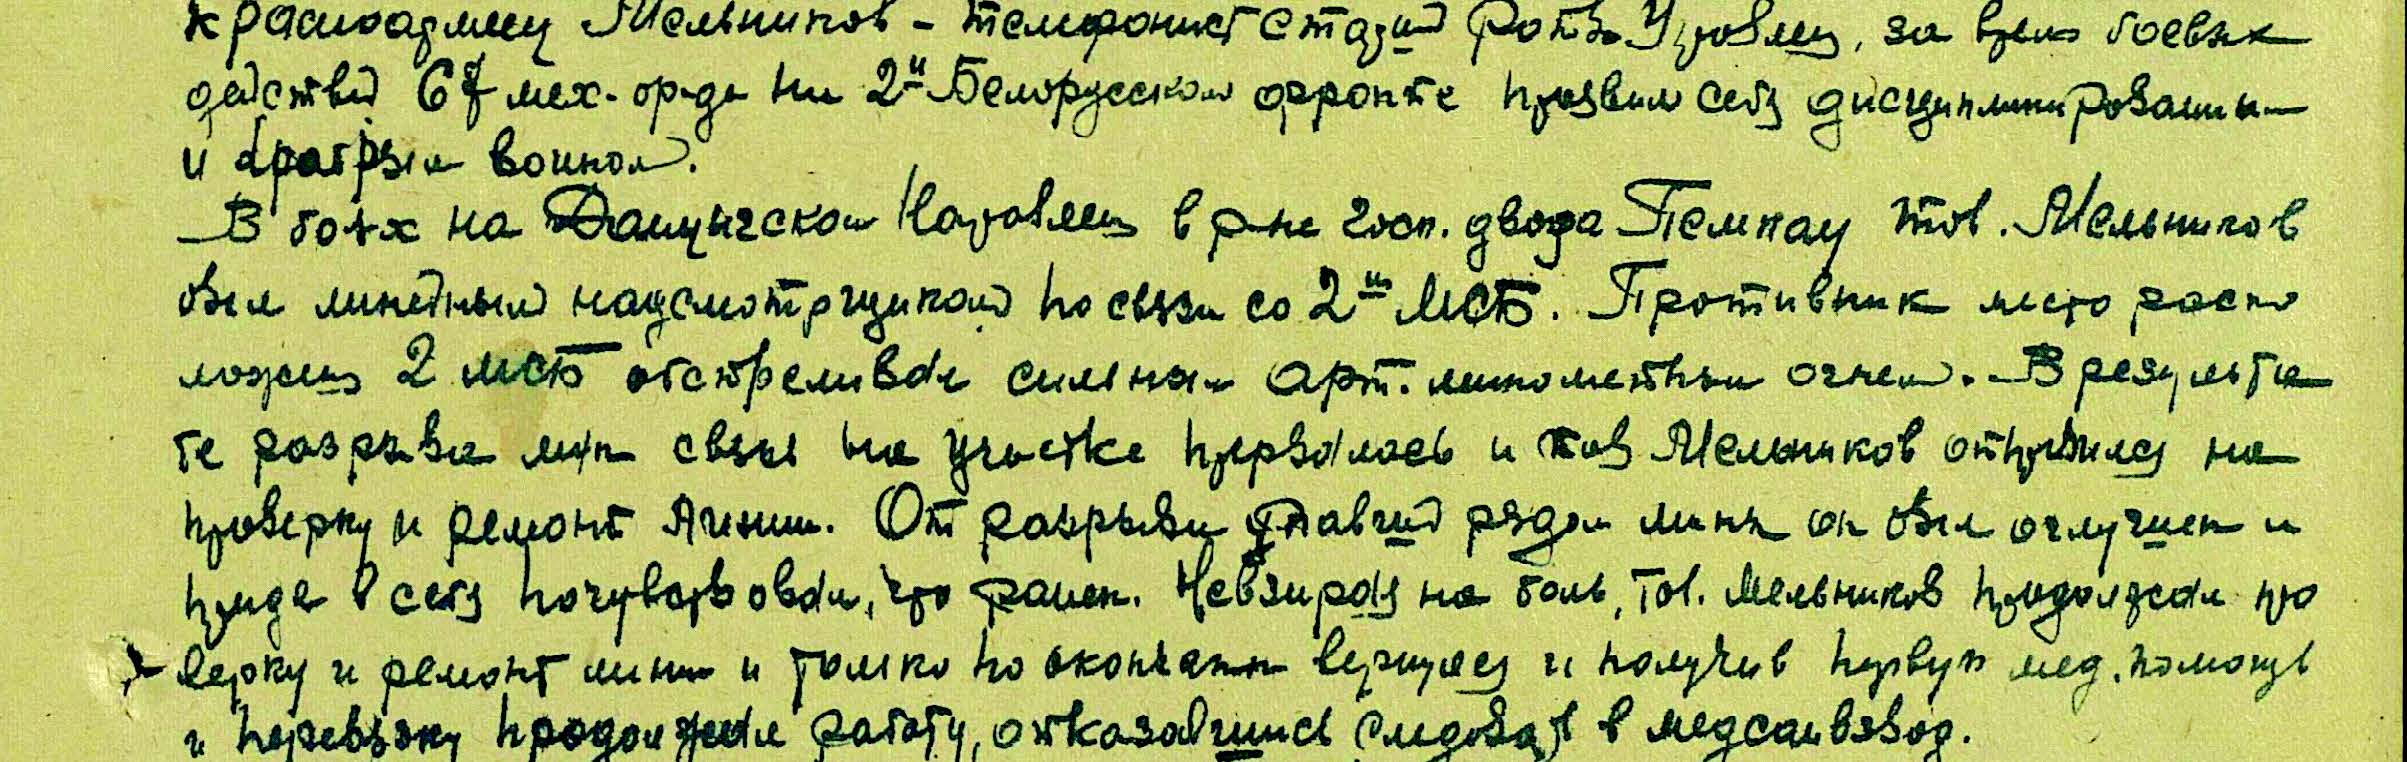 Красноармеец Мельников – телефонист старший Роты Управлен, за время боевых
действий 67 мех. бр-ды на 2й Белорусском фронте проявил себя дисциплинированным
и храбрым воином.
В боях на Данцигском направлен в р-не госп. двора Темпау тов. Мельников
был линейным надсмотрщиком по связи со 2й МСБ. Противник место распо
ложен 2 МСБ обстреливал сильным арт. минометным огнем. В результа
те разрыва мин связь на участке прервалась и тов Мельников отправился на
проверку и ремонт линии. От разрыва упавшей рядом мины он был оглушен и
придя в себя почувствовал, что ранен. Невзирая на боль, тов. Мельников продолжал про
верку и ремонт линии и только по окончании вернулся и получив первую мед. помощь
и перевязку продолжал работу, отказавшись следовать в медсанвзвод.